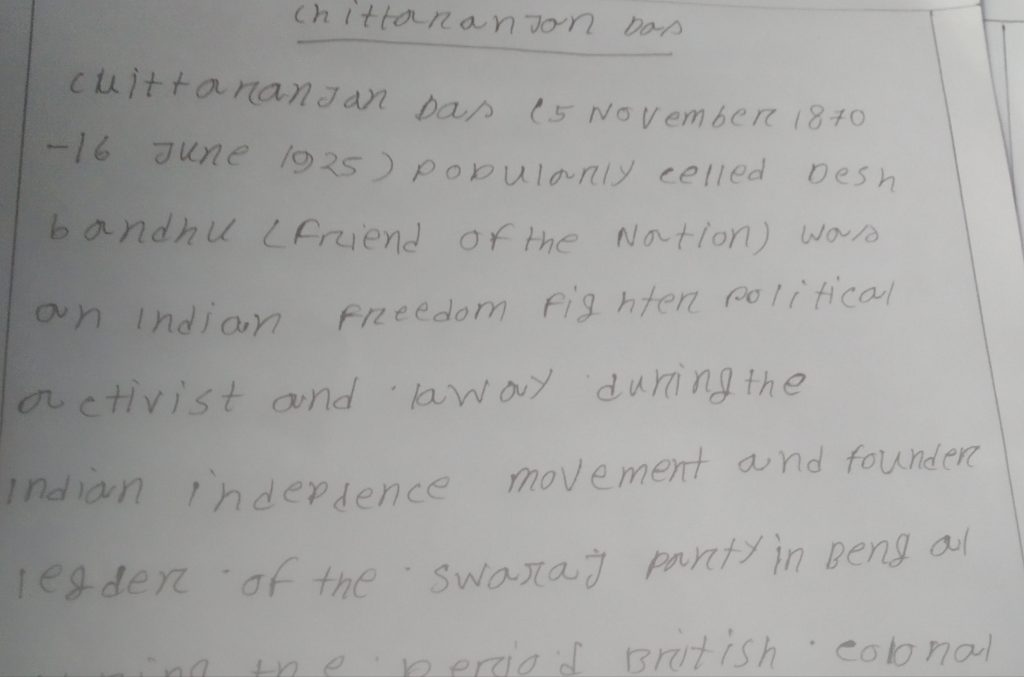 Chittaranjan Das
Chittaranjan Das (5 November 1870
-16 June 1925) popularly celled Desh
bandhu (friend of the Nation) was
an Indian freedom fighter political
activist and laway during the
Indian indepdence movement and founder
legder of the swaraj party in Bengal
the period British colonal